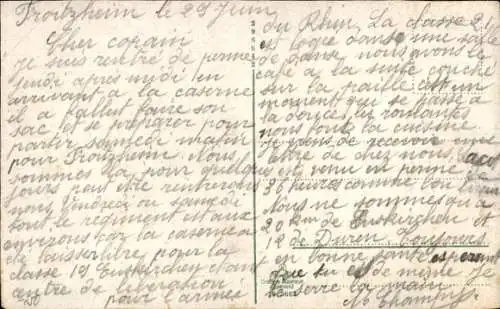 Froitzheim le 29 Juin
Cher copain
je suis rentré de perme
jeudi après midi en
arrivant a la caserne
il a fallut faire son
sac et se préparer pour
partir samedi matin
pour Froitzheim. Nous
sommes la pour quelques
jours peut etre rentrerons
nous vendredi ou samedi
tout le regiment est aux
environs par la caserne a
de laisser libre pour la
classe 19 Euskirchen étant
centre de liberation
pour l'armée
du Rhin. La classe 21
est logée dans une salle
de danse nous avons le
café a la suite couché
sur la paille est un
moment qui se passe a
la douce, les
nous font la cuisine.
Je viens de recevoir une
lettre de chez nous,
en venu en perme
36 heures comme
Nous ne sommes qu a
20 km de Euskirchen et
12 de Duren. Toujours
en bonne santé esperant
que tu es de meme Je
serre la main